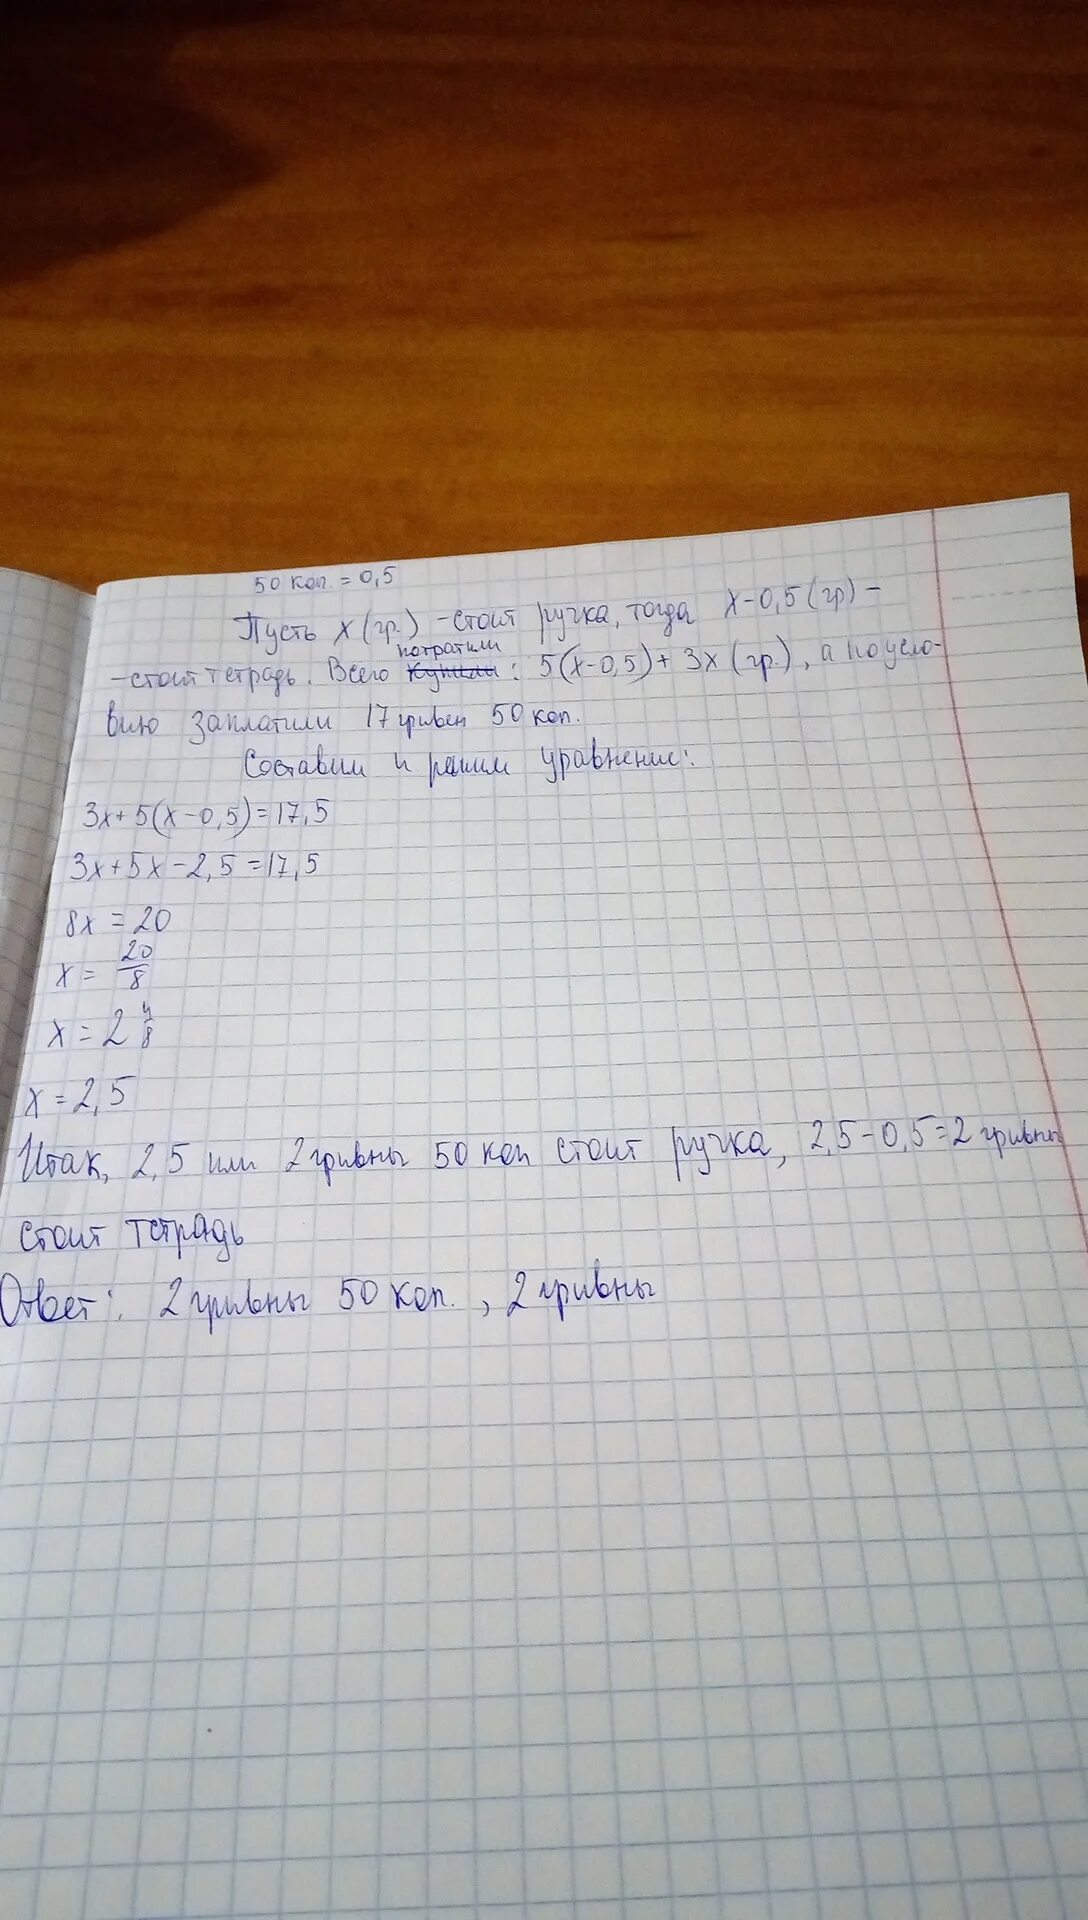 50 коп. = 0,5
Пусть x (гр.) - стоит ручка, тогда x-0,5 (гр) -
- стоит тетрадь. Всего купили потратили : 5(x-0,5)+3x (гр.), а по усло-
вию заплатили 17 гривен 50 коп.
Составим и решим уравнение:
3x+5(x-0,5)=17,5
3x+5x-2,5=17,5
8x=20
x= 20/8
x=2 4/8
x=2,5
Итак, 2,5 или 2 гривны 50 коп стоит ручка, 2,5-0,5=2 гривны
стоит тетрадь
Ответ: 2 гривны 50 коп., 2 гривны